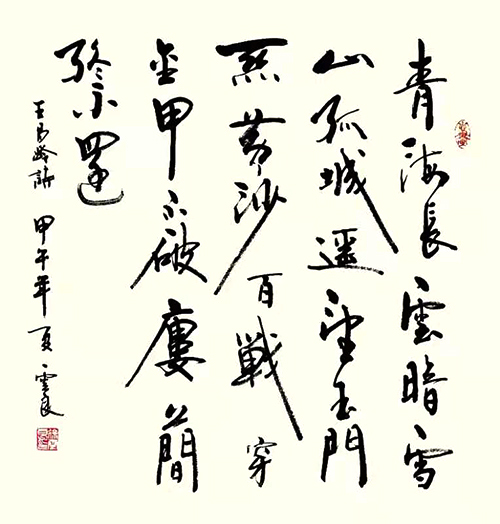 青海長雲暗雪
山孤城遥望玉門
關黄沙百戰穿
金甲不破廔蘭
終不還
王昌齡詩 甲午年夏 雲良